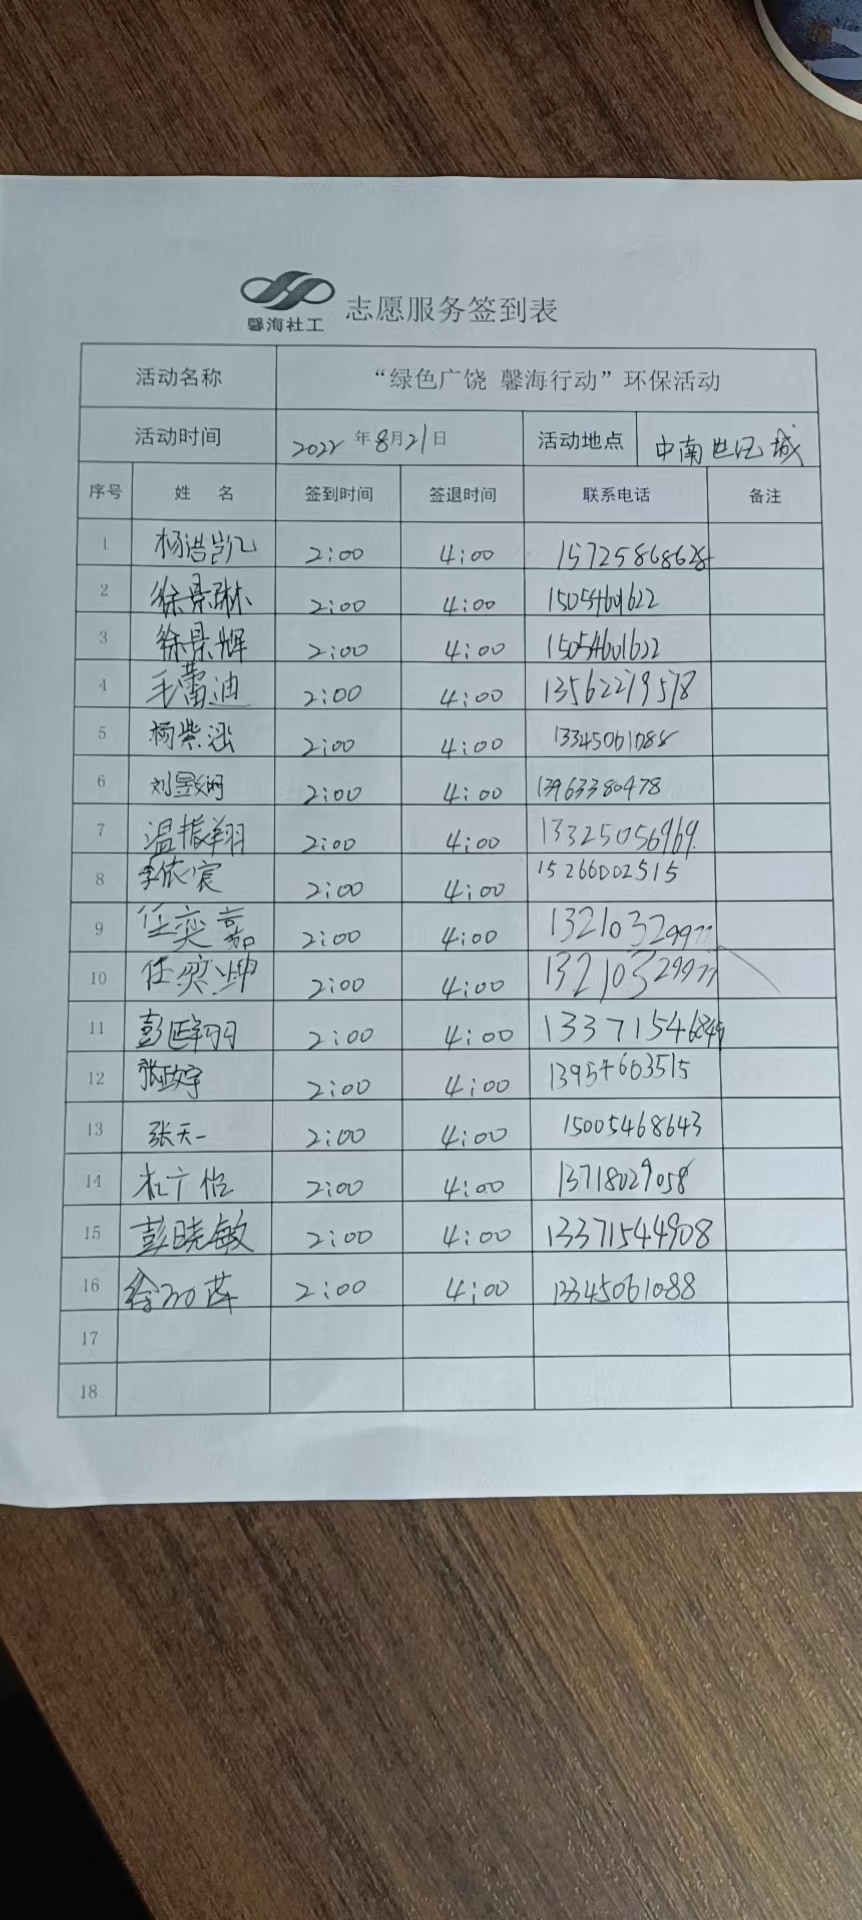 馨海社工 志愿服务签到表
活动名称 “绿色广饶 馨海行动”环保活动
活动时间 2022年8月21日 活动地点 中南世纪城
序号 姓 名 签到时间 签退时间 联系电话 备注
1 杨浩凯 2:00 4:00 15725868628
2 徐景琳 2:00 4:00 15054601622
3 徐景辉 2:00 4:00 15054601622
4 毛蕾迪 2:00 4:00 13562279578
5 杨紫涵 2:00 4:00 13345061088
6 刘昱娴 2:00 4:00 13963380478
7 温振翔 2:00 4:00 13325056969
8 李依宸 2:00 4:00 15266002515
9 任奕嘉 2:00 4:00 13210329977
10 任奕帅 2:00 4:00 13210329977
11 彭延翔 2:00 4:00 13371546849
12 张政宇 2:00 4:00 13954603515
13 张天一 2:00 4:00 15005468643
14 杜广怡 2:00 4:00 13718029058
15 彭晓敏 2:00 4:00 13371544908
16 2:00 4:00 13345061088
17
18